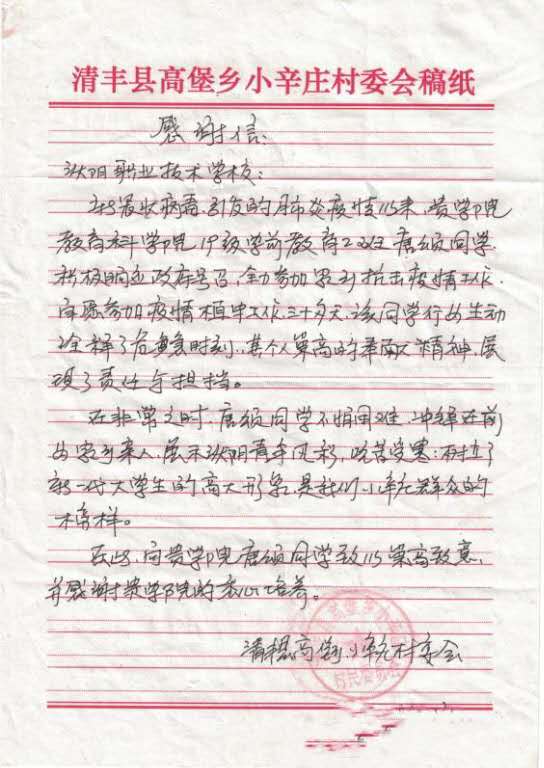 清丰县高堡乡小辛庄村委会稿纸
感谢信:
濮阳职业技术学校:
冠状病毒引发的肺炎疫情以来,贵学院
教育科学学院19级学前教育二班唐硕同学,
积极响应政府号召,全力参加家乡抗击疫情工作,
自愿参加疫情值班工作三十多天,该同学行为生动
诠释了危急时刻,其个人崇高的奉献精神,展
现了责任与担当。
在非常之时,唐硕同学不惧困难,冲锋在前
的家乡亲人,展示濮阳青年风彩,吃苦受寒;树立了
新一代大学生的高大形象,是我们小辛庄群众的
榜样。
在此,向贵学院唐硕同学致以崇高致意,
并感谢贵学院的精心培养。
清丰县高堡乡小辛庄村委会